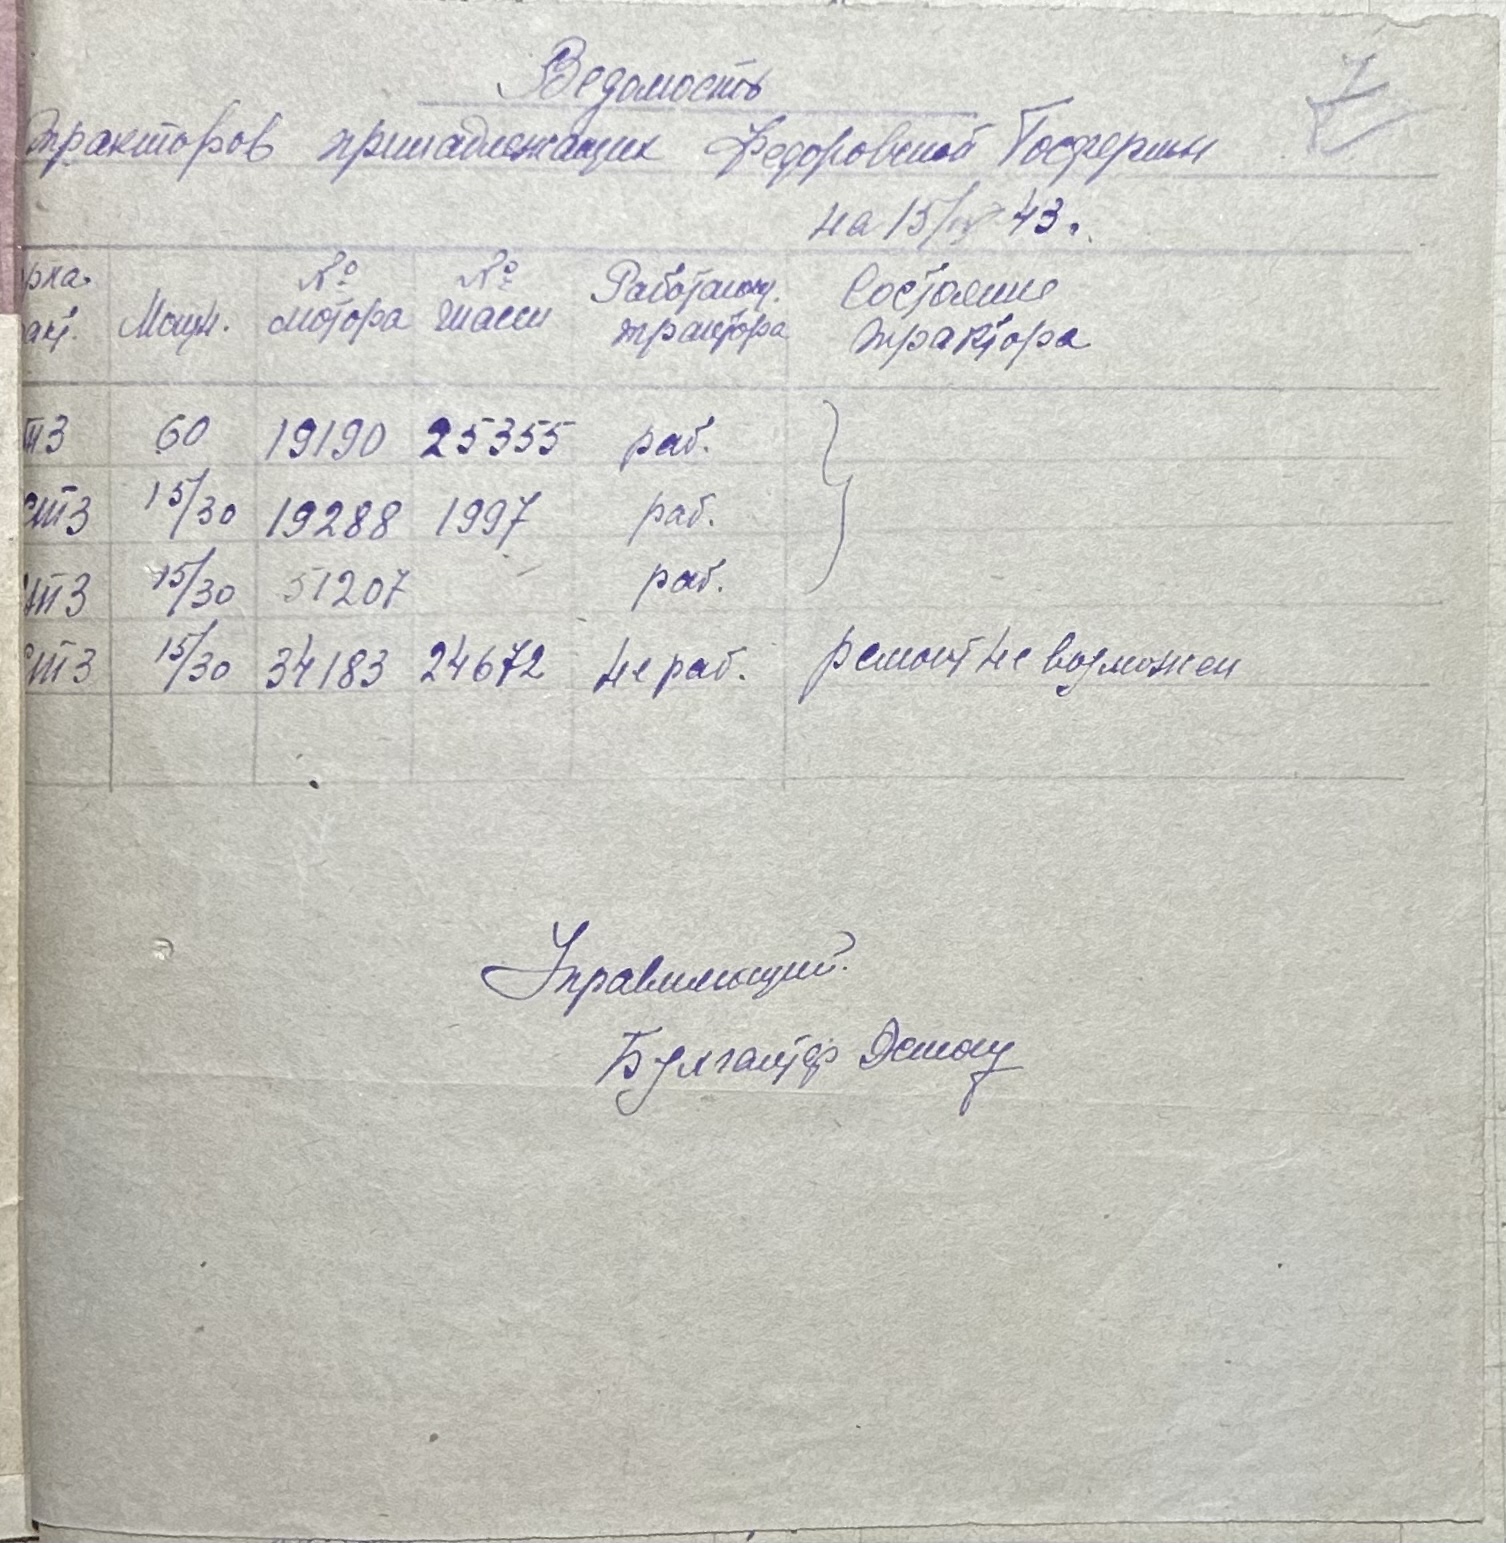 7
Ведомость
тракторов принадлежащих Федоровской Госфермы
на 15/IV 43.
рка. Мощн. № мотора № шасси Работающ. трактора Состояние трактора
акт.
ТЗ 60 19190 25355 раб.
СТЗ 15/30 19288 1997 раб.
ТЗ 15/30 51207 раб.
СТЗ 15/30 34183 24672 не раб. ремонт не возможен
Управляющий.
Бухгалтер